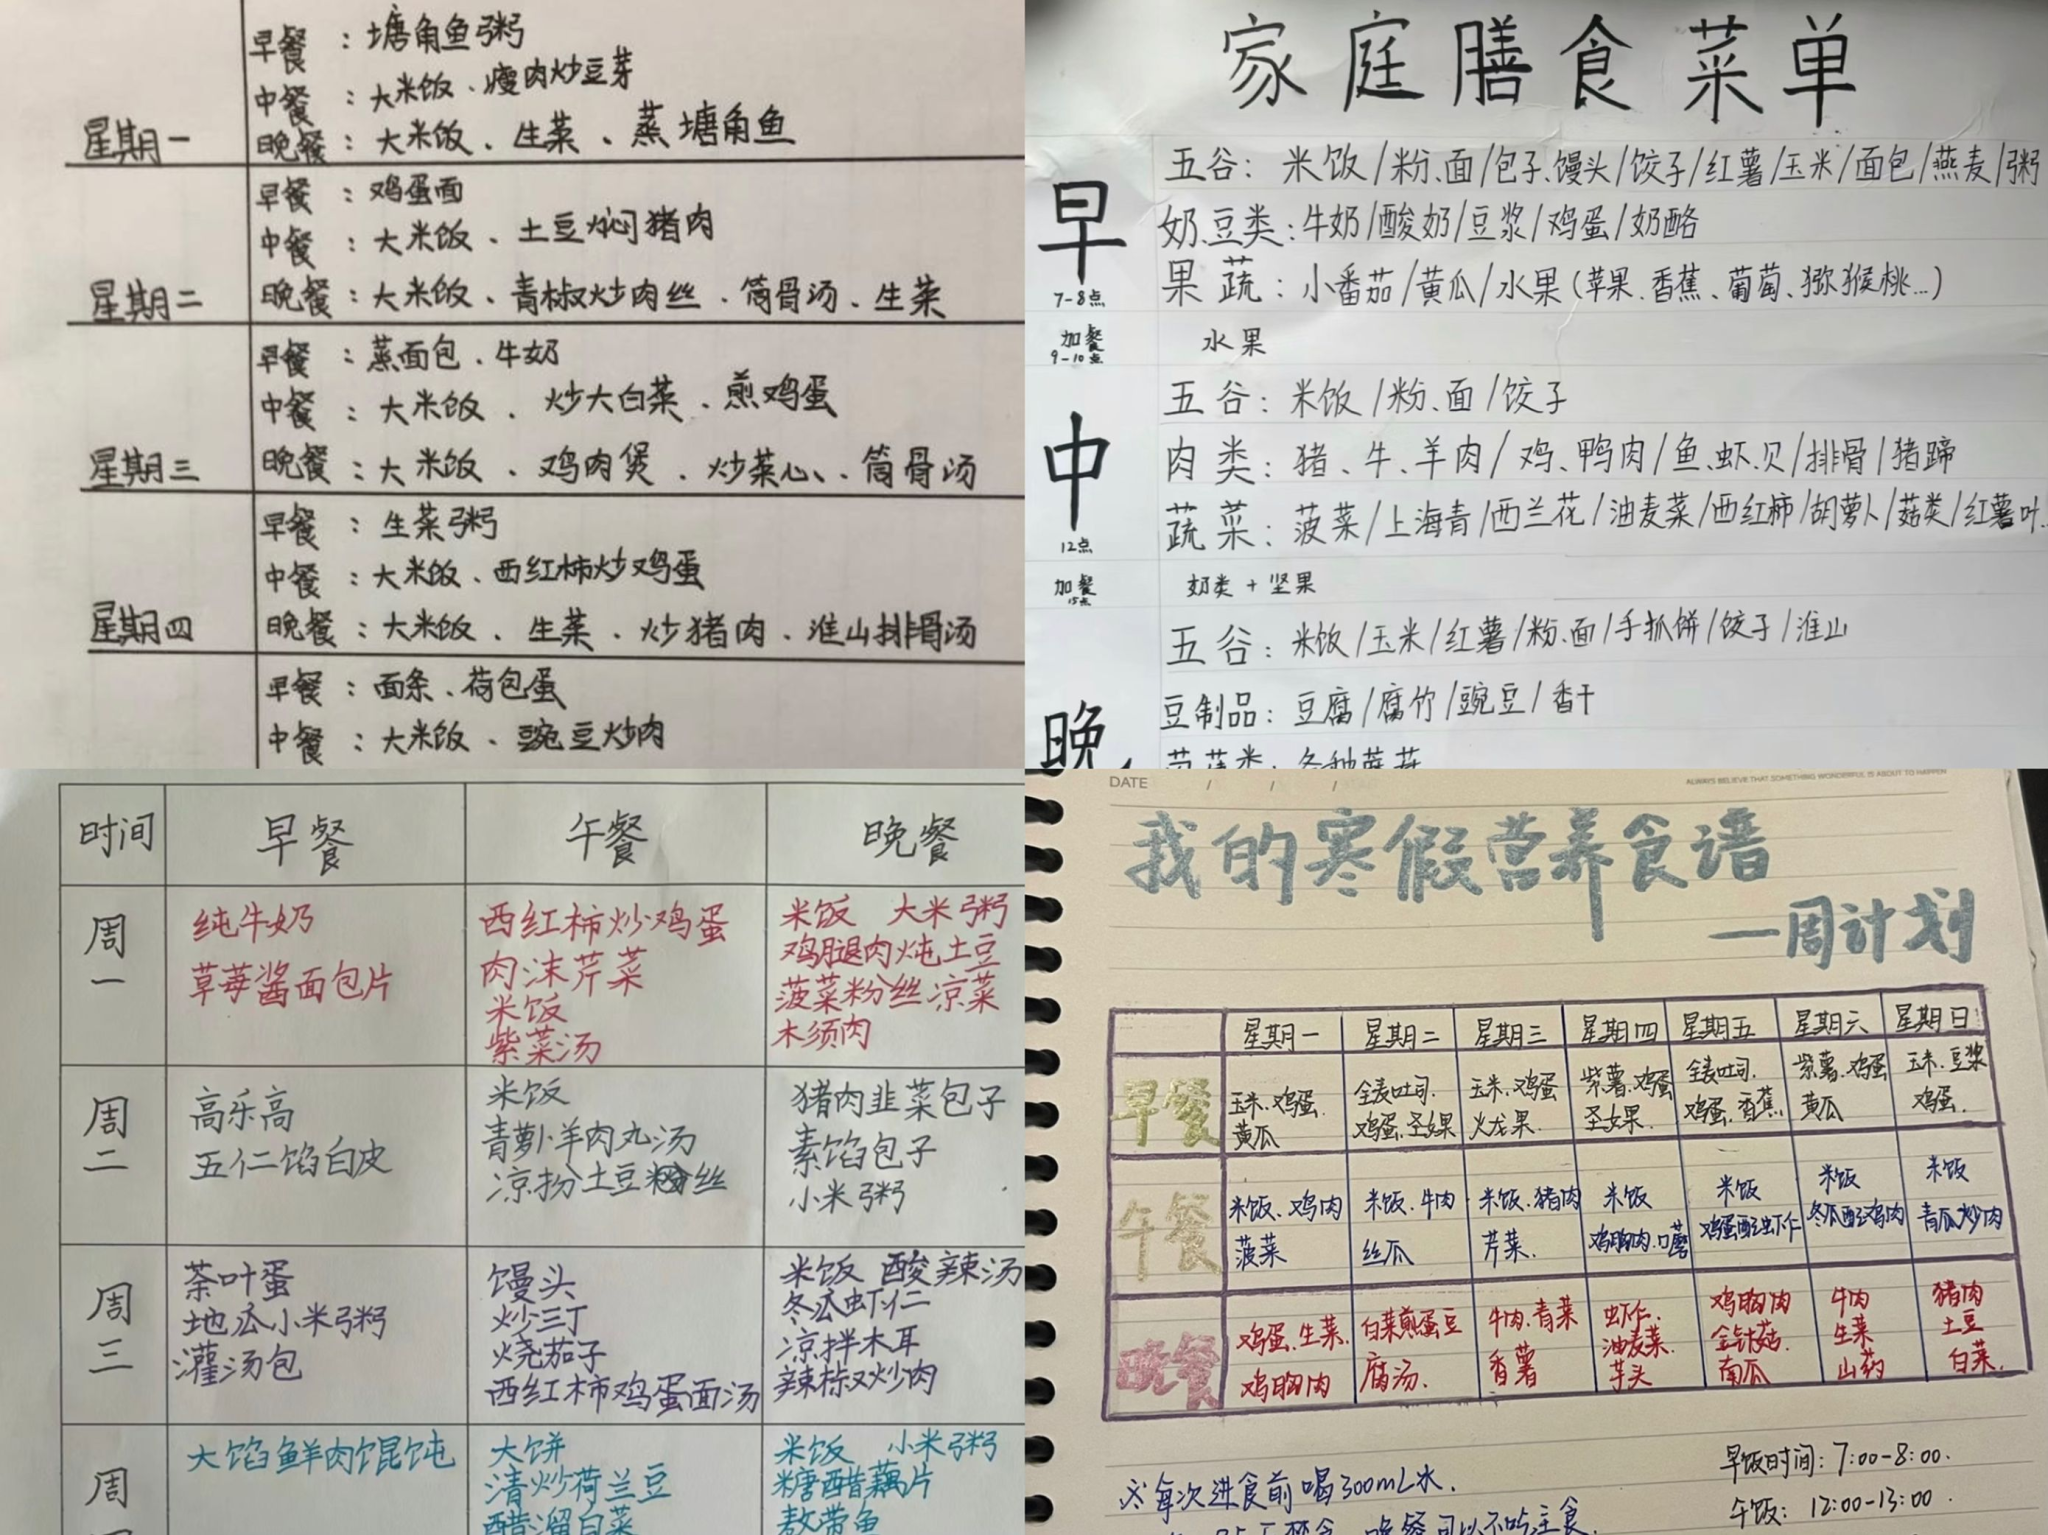 早餐：塘角鱼粥
中餐：大米饭、瘦肉炒豆芽
星期一
晚餐：大米饭、生菜、蒸塘角鱼
早餐：鸡蛋面
中餐：大米饭、土豆焖猪肉
星期二
晚餐：大米饭、青椒炒肉丝、筒骨汤、生菜
早餐：蒸面包、牛奶
中餐：大米饭、炒大白菜、煎鸡蛋
星期三
晚餐：大米饭、鸡肉煲、炒菜心、筒骨汤
早餐：生菜粥
中餐：大米饭、西红柿炒鸡蛋
星期四
晚餐：大米饭、生菜、炒猪肉、淮山排骨汤
早餐：面条、荷包蛋
中餐：大米饭、豌豆炒肉
家庭膳食菜单
早
7-8点
五谷：米饭/粉、面/包子、馒头/饺子/红薯/玉米/面包/燕麦/粥
奶、豆类：牛奶/酸奶/豆浆/鸡蛋/奶酪
果蔬：小番茄/黄瓜/水果(苹果、香蕉、葡萄、猕猴桃...)
加餐
9-10点
水果
中
12点
五谷：米饭/粉、面/饺子
肉类：猪、牛、羊肉/鸡、鸭肉/鱼、虾、贝/排骨/猪蹄
蔬菜：菠菜/上海青/西兰花/油麦菜/西红柿/胡萝卜/菇类/红薯叶...
加餐
15点
奶类+坚果
晚
五谷：米饭/玉米/红薯/粉、面/手抓饼/饺子/淮山
豆制品：豆腐/腐竹/豌豆/香干
时间 早餐 午餐 晚餐
周一
纯牛奶
草莓酱面包片
西红柿炒鸡蛋
肉沫芹菜
米饭
紫菜汤
米饭 大米粥
鸡腿肉炖土豆
菠菜粉丝凉菜
木须肉
周二
高乐高
五仁馅白皮
米饭
青萝卜羊肉丸汤
凉扮土豆粉丝
猪肉韭菜包子
素馅包子
小米粥
周三
茶叶蛋
地瓜小米粥
灌汤包
馒头
炒三丁
烧茄子
西红柿鸡蛋面汤
米饭 酸辣汤
冬瓜虾仁
凉拌木耳
辣椒炒肉
周
大馅鲜肉馄饨
大饼
清炒荷兰豆
醋溜白菜
米饭 小米粥
糖醋藕片
熬带鱼
DATE / / /
ALWAYS BELIEVE THAT SOMETHING WONDERFUL IS ABOUT TO HAPPEN
我的寒假营养食谱
一周计划
星期一 星期二 星期三 星期四 星期五 星期六 星期日
早餐
玉米、鸡蛋、
黄瓜
全麦吐司、
鸡蛋、圣女果
玉米、鸡蛋
火龙果、
紫薯、鸡蛋
圣女果、
全麦吐司、
鸡蛋、香蕉、
紫薯、鸡蛋
黄瓜
玉米、豆浆
鸡蛋、
午餐
米饭、鸡肉
菠菜
米饭、牛肉
丝瓜
米饭、猪肉
芹菜、
米饭
鸡胸肉、口蘑
米饭
鸡蛋配虾仁
米饭
冬瓜配鸡肉
米饭
青瓜炒肉
晚餐
鸡蛋、生菜、
鸡胸肉
白菜煎蛋豆
腐汤、
牛肉、青菜
香薯
虾仁、
油麦菜、
芋头
鸡胸肉
金针菇、
南瓜
牛肉
生菜
山药
猪肉
土豆
白菜、
※每次进食前喝300mL水、
早饭时间：7:00-8:00、
午饭：12:00-13:00、
晚餐可以不吃主食、